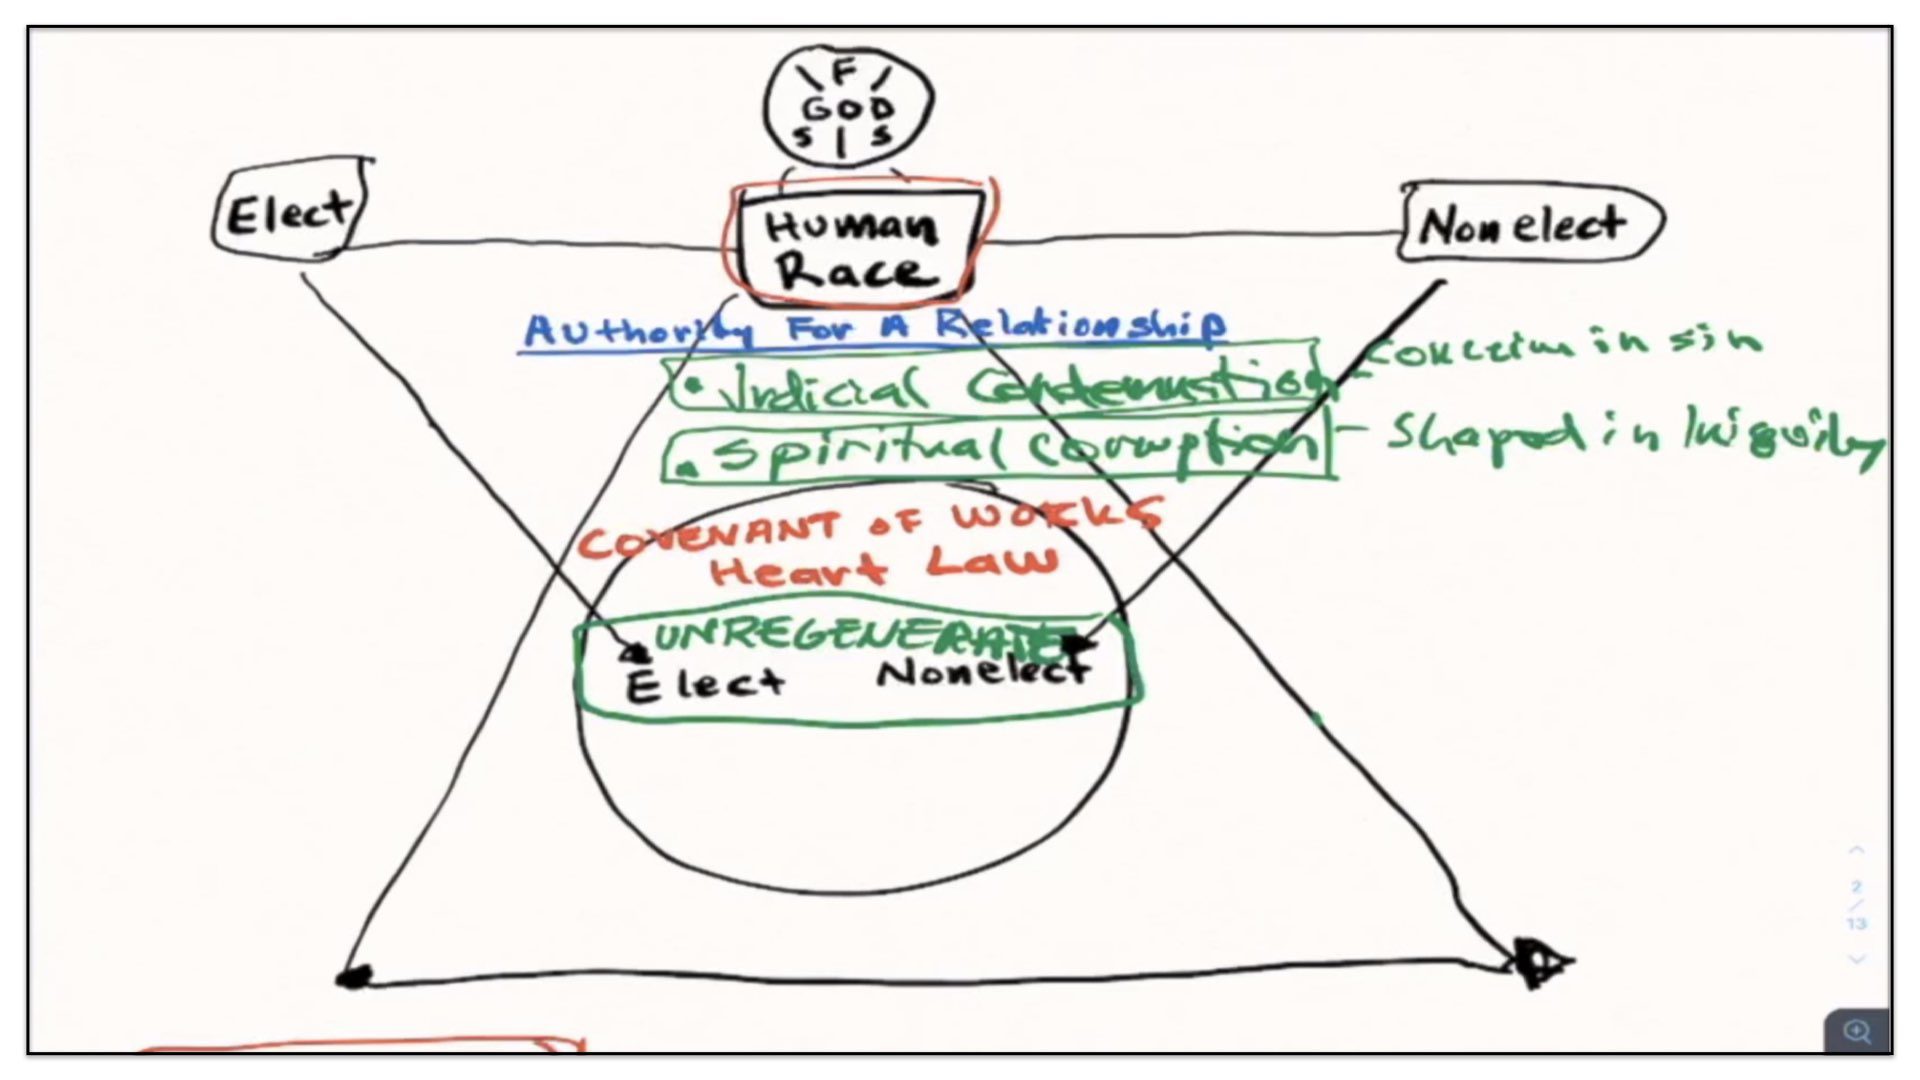 \ F /
GOD
S | S
Elect
Human
Race
Nonelect
Authority For A Relationship
• Judicial Condemnation - Concein in sin
• Spiritual Corruption - Shaped in Iniquity
COVENANT OF WORKS
Heart Law
UNREGENERATE
Elect Nonelect
2
/
13